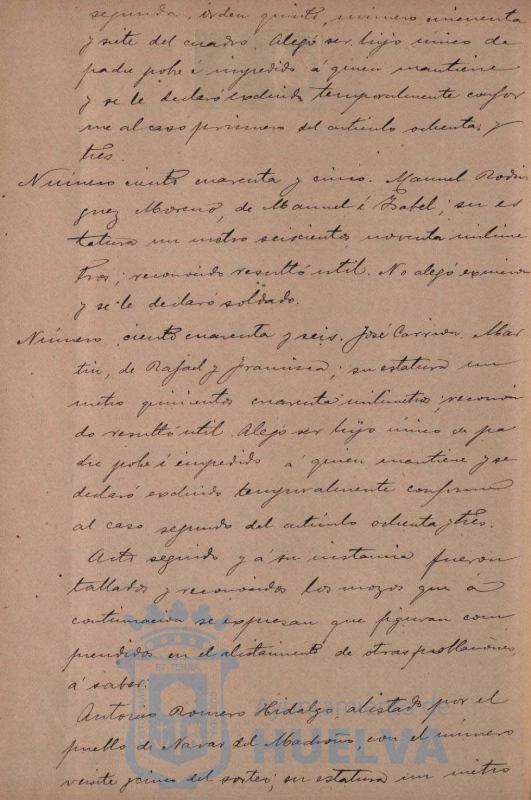 segunda, orden quinto, número cincuenta
y siete del cuadro. Alegó ser hijo único de
padre pobre é impedido á quien mantiene
y se le declaró excluido temporalmente confor
me al caso primero del artículo ochenta y
tres.
Número ciento cuarenta y cinco. Manuel Rodri
guez Moreno, de Manuel é Isabel; su es
tatura un metro seiscientos noventa milime
tros; reconocido resultó util. No alegó exencion
y se le declaró soldado.
Número ciento cuarenta y seis. José Carrion Mar
tin, de Rafael y Francisca; su estatura un
metro quinientos cuarenta milimetros; reconoci
do resultó util. Alegó ser hijo único de pa
dre pobre é impedido á quien mantiene y se
declaró excluido temporalmente conforme
al caso segundo del artículo ochenta y tres.
Acto seguido y á su instancia fueron
tallados y reconocidos los mozos que á
continuacion se expresan que figuran com
prendidos en el alistamiento de otras poblaciones,
á saber:
Antonio Romero Hidalgo, alistado por el
pueblo de Navas del Madroño, con el número
veinte y cinco del sorteo; su estatura un metro
Ayuntamiento de
HUELVA